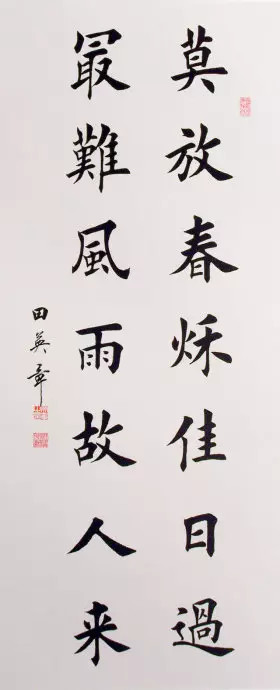 莫放春秌佳日過
最難風雨故人来
田英章